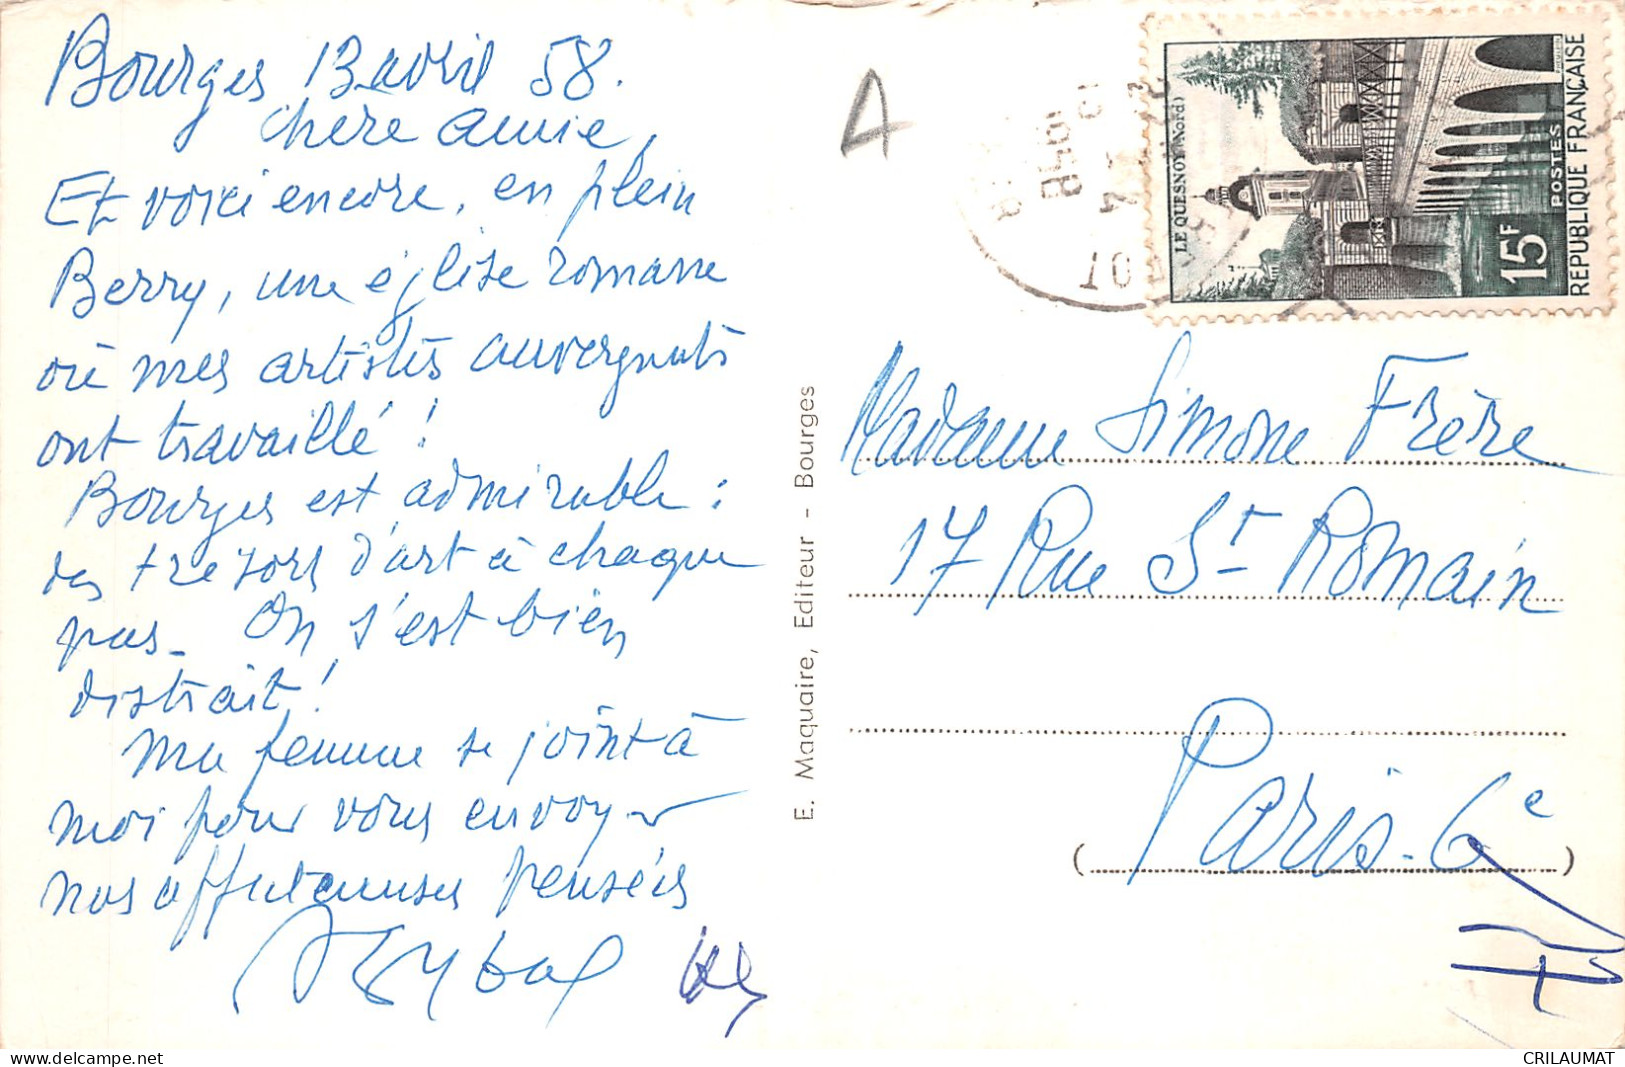 Bourges 13 avril 58.
Chère amie,
Et voici encore, en plein
Berry, une église romane
où mes artistes auvergnats
ont travaillé !
Bourges est admirable :
des trésors d'art à chaque
pas - On s'est bien
distrait !
Ma femme se joint à
moi pour vous envoyer
nos affectueuses pensées
A
E. Maquaire, Editeur - Bourges
LE QUESNOY (Nord)
15F
POSTES
REPUBLIQUE FRANÇAISE
Madame Simone Frère
17 Rue St Romain
( Paris - 6e )
CRILAUMAT
www.delcampe.net